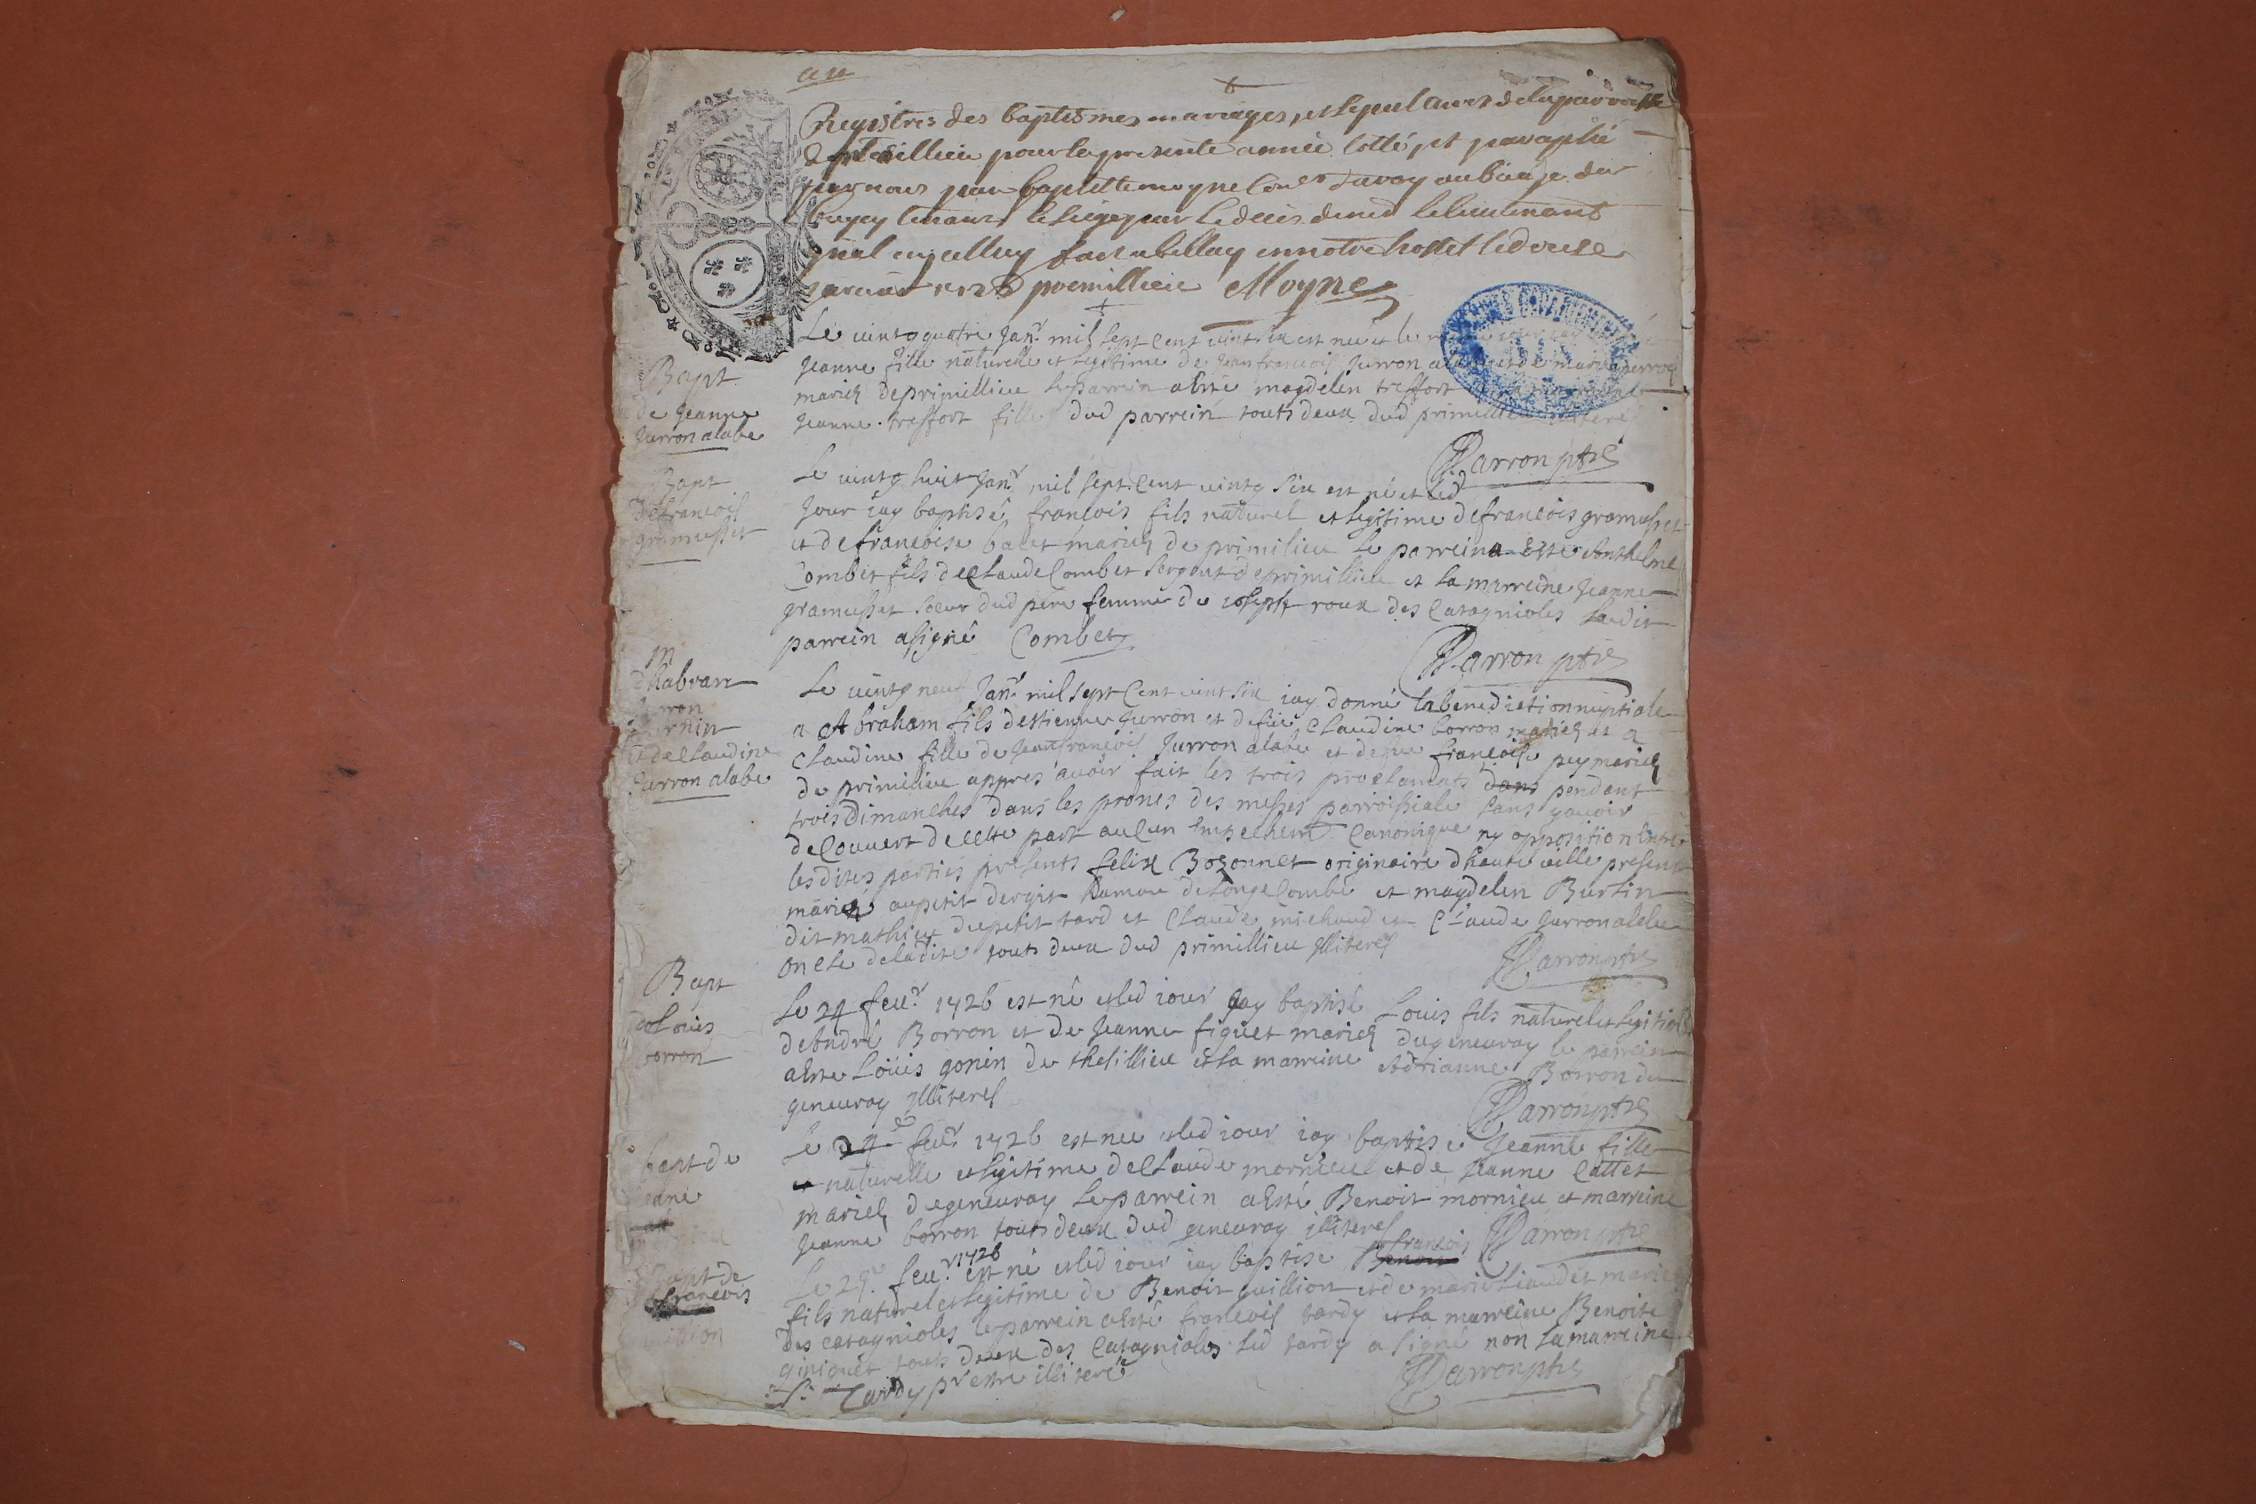 Registres des baptesmes mariages, et sepultures de la parroisse
de premillieu pour la presente année cotté, et paraphé
par nous jean baptiste moyne Coner du roy au bailiage de
bugey tenant le siege par le deces de mr le lieutenant
gnal en icelluy fait a bellay en notre hostel le douse
janvier 1726 premillieu Moyne
Le vintg quatre Janr mil sept Cent vint six est née et le
Bapt
de Jeanne
Jurron alabe
Jeanne fille naturelle et legitime de Jean francois Jurron alabe et de marie
mariez de primillieu le parrein a esté magdelen treffort
Jeanne treffort fille dud parrein touts deux dud primillieu
Darron ptre
Bapt
de francois
gramusset
Le vintg huit Janr mil sept Cent vintg six est né et led
Jour iay baptisé francois fils naturel et legitime de francois gramusset
et de francoise balet mariez de primilieu le parrein a esté Anthelme
Combet fils de Claude Combet sergent de primillieu et la marreine Jeanne
gramusset soeur dud pere femme de ioseph roux des Catagnioles ledit
parrein a signé Combet
Darron ptre
m
dhabram
Jurron
et de Claudine
Jurron alabe
Le vintg neuf Janr mil sept Cent vint six iay donné la benediction nuptiale
a Abraham fils destienne Jurron et de fue Claudine borron mariez et a
Claudine fille de Jean francois Jurron alabe et de fue francoise pey mariez
de primilieu appres avoir fait les trois proclamats dans pendant
trois Dimanches dans les prones des messes parroissiale sans y avoir
decouvert de cette part aucun empechemt Canonique ny opposition entre
lesdites parties presents felix Bozonnet originaire dhauteville present
mariez au petit dergit hameau de longe Combe et magdelen Burtin
dit mathieu du petit tard et Claude michaud et Claude Jurron alabe
oncle de ladite touts deux dud primillieu jlliteres
Darron ptre
Bapt
de Louis
borron
Le 24 feur 1726 est né et led iour iay baptisé Louis fils naturel et legitime
de André Borron et de Jeanne figuet mariez du genevray le parrein
a esté Loüis gonin de thesillieu et la marreine Adrianne Borron du
genevray jlliteres
Darron ptre
bapt de
Jane
Le 24e feur 1726 est née et led iour iay baptisé Jeanne fille
et naturelle et legitime de Claude mornieu et de Jeanne Cattet
mariez du genevray le parrein a esté Benoit mornieu et marreine
Jeanne borron touts deux dud genevray jlliteres
Darron ptre
Bapt de
francois
guillion
Le 25e feur 1726 est né et led iour iay baptisé Benoit francois
fils naturel et legitime de Benoit guillion et de marie liaudet mariez
des catagnioles le parrein a esté francois tardy et la marreine Benoite
giniquet touts deux des Catagnioles led tardy a signé non la marreine
f. Tardy presne illiteré
Darron ptre